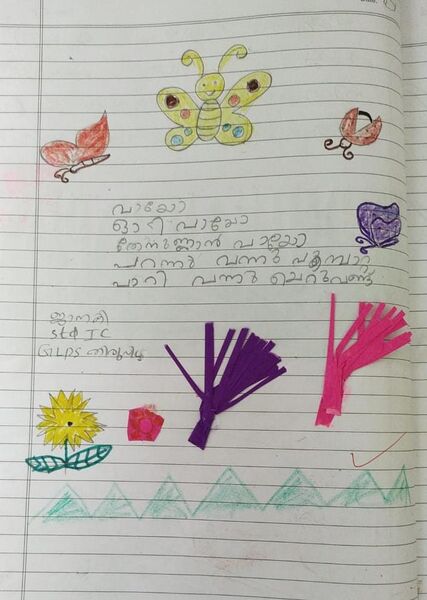 വായോ
ഓടി വായോ
തേനുണ്ണാൻ വായോ
പറന്നു വന്നു പൂമ്പാറ്റ
പാറി വന്നു ചെറുവണ്ട്
ജാനകി
Std I C
GLPS